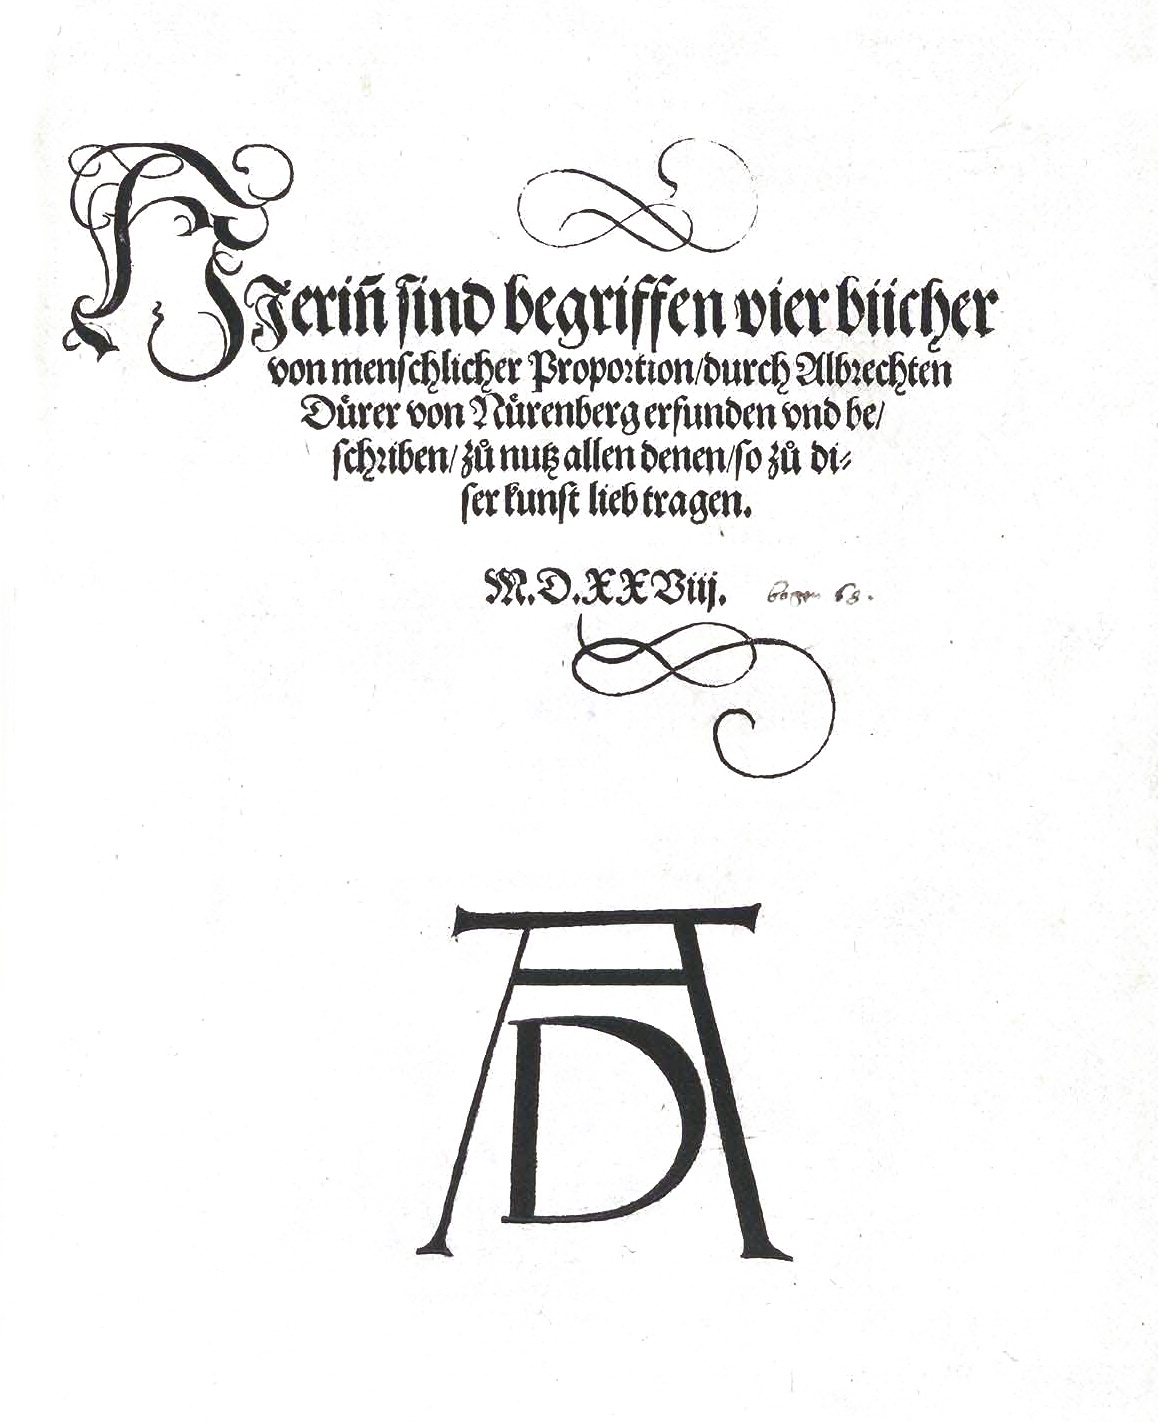 HJerin̄ sind begriffen vier bücher
von menschlicher Proportion/durch Albrechten
Duͤrer von Nuͤrenberg erfunden vnd be/
schriben/zuͦ nutz allen denen/so zuͦ di⸗
ser kunst lieb tragen.
M.D.XXViij. bogen 68.
AD